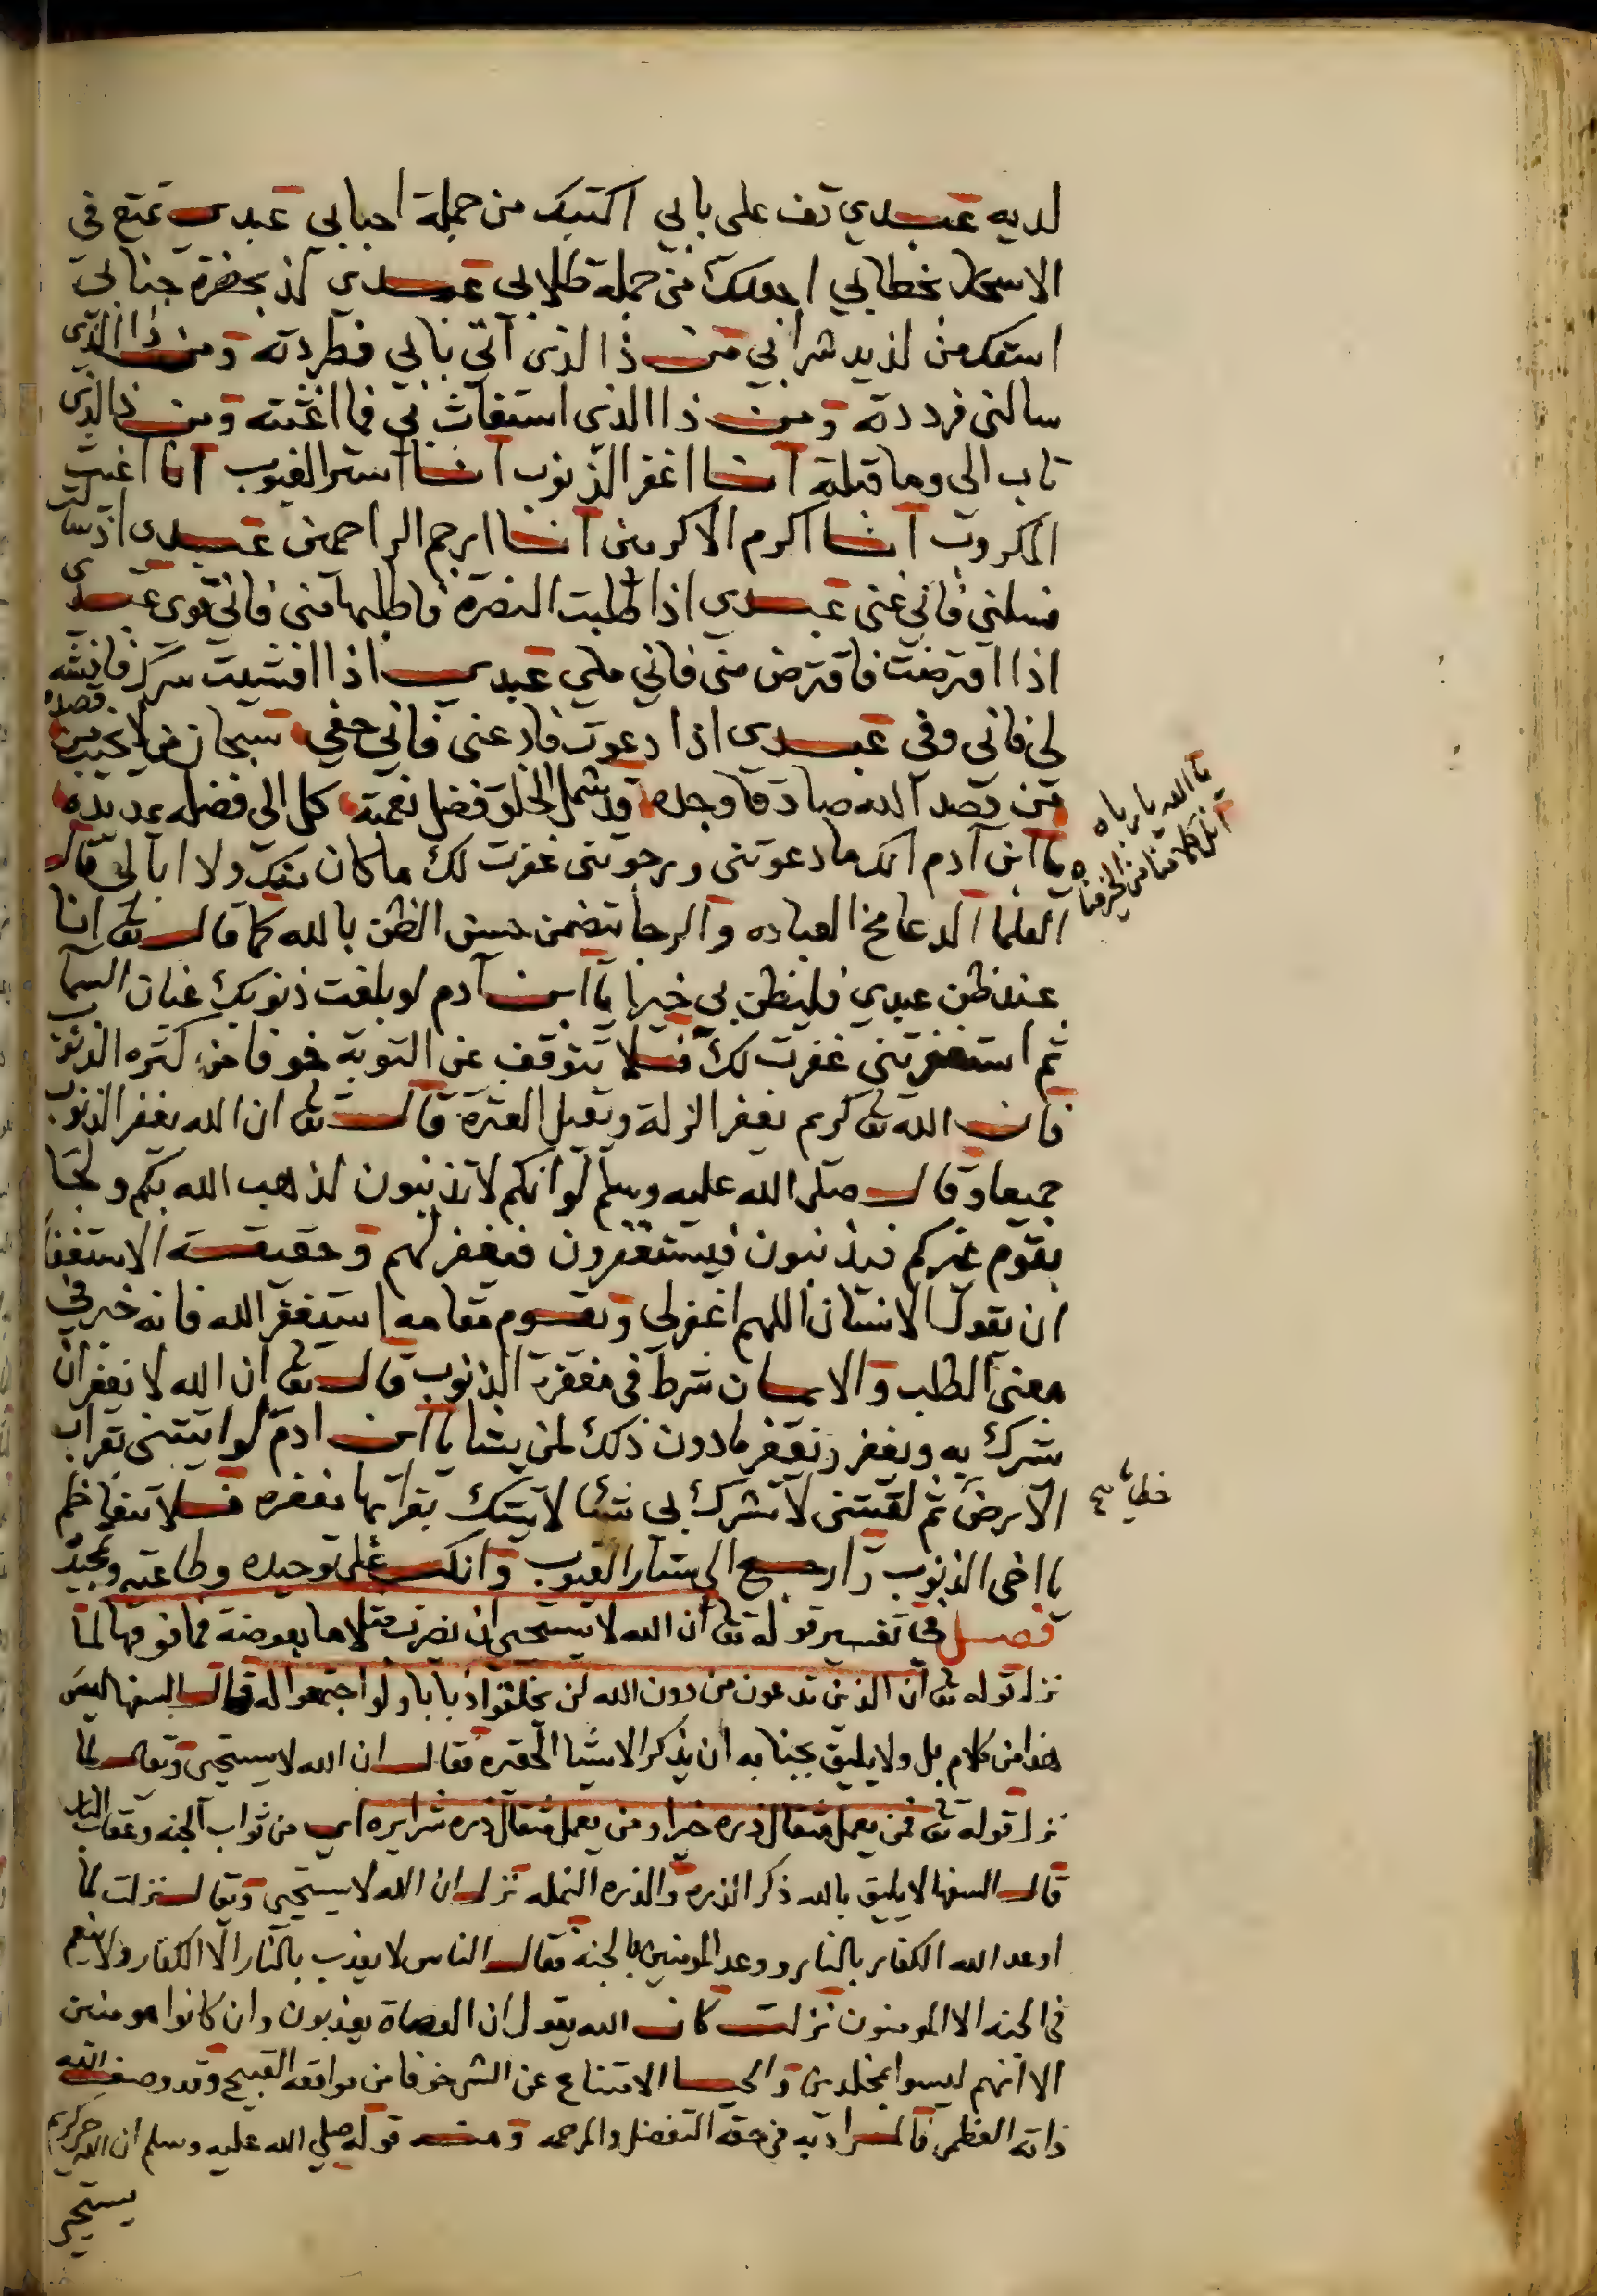 لديه عبدي قف على بابي اكتبك من جملة احبابي عبدي تمتع في
الاسحار بخطابي اجعلك من جملة طلابي عبدي لذ بحضرة جنابي
اسقك من لذيد شرابي من ذا الذى آتي بابي فطردته ومن ذا الذى
سالنى فرددته ومن ذا الذى استغاث بي فما اغثته ومن ذا الذى
تاب الى وما قبلته انا اغفر الذنوب انا استر العيوب انا اغيث
المكروب انا اكرم الاكرمين انا ارحم الراحمين عبدي اذا سالت
فسلني فاني غني عبدي اذا طلبت النصرة فاطلبها مني فاني قوى عبدى
اذا اقترضت فاقترض مني فاني ملي عبدي اذا افشيت سرك فافشه
لى فاني وفي عبدي اذا دعوت فادعنى فاني حفي سبحان من لا يخيب من قصده
من قصد الله صادقا وجده قد شمل الخلق فضل نعمته كل الى فضله يمد يده
يا ابن آدم انك ما دعوتنى ورجوتنى غفرت لك ما كان منك ولا ابالى قال
العلما الدعا مخ العباده والرجا يتضمن حسن الظن بالله كما قال تعالى انا
عند ظن عبدي فليظن بي خيرا يا ابن آدم لو بلغت ذنوبك عنان السما
ثم استغفرتني غفرت لك فلا تتوقف عن التوبة خوفا من كثره الذنوب
فان الله تعالى كريم يغفر الزلة ويقيل العثرة قال تعالى ان الله يغفر الذنوب
جميعا وقال صلى الله عليه وسلم لو انكم لا تذنبون لذهب الله بكم ولجا
بقوم غيركم فيذنبون فيستغفرون فيغفر لهم وحقيقة الاستغفار
ان يقول الانسان اللهم اغفر لى ويقوم مقامه استغفر الله فانه خبر في
معنى الطلب والايمان شرط فى مغفرة الذنوب قال تعالى ان الله لا يغفر ان
يشرك به ويغفر ويغفر ما دون ذلك لمن يشا يا ابن ادم لو اتيتني بقراب
الارض ثم لقيتنى لا تشرك بى شئا لاتيتك بقرابها مغفره فلا تتعاظم
يا اخى الذنوب وارجع الى ستار العيوب وانكب على توحيده وطاعته وتمجيده
فصل في تفسير قوله تعالى ان الله لا يستحى ان يضرب مثلا ما بعوضة فما فوقها لما
نزل قوله تعالى ان الذين تدعون من دون الله لن يخلقوا ذبابا ولو اجتمعوا له قال السفها ليس
هذا من كلام بل ولا يليق بجنابه ان يذكر الاشيا الحقيره فقال ان الله لا يستحيى ويقال لما
نزل قوله تعالى فمن يعمل مثقال ذره خيرا ومن يعمل مثقال ذره شرا يره اى من ثواب الجنه وعقاب النار
قال السفها لا يليق بالله ذكر الذره والذره النمله نزل ان الله لا يستحيى ويقال نزلت لما
اوعد الله الكفار بالنار ووعد المومنين بالجنة فقال الناس لا يعذب بالنار الا الكفار ولا ينعم
فى الجنه الا المومنون نزلت كان الله يقول ان العصاة يعذبون وان كانوا مومنين
الا انهم ليسوا بمخلدين والحيا الامتناع عن الشر خوفا من مواقعة القبيح وقد وصف الله
ذاته العظمى فالمراد به فى حقه التفضل والرحمه ومنه قوله صلي الله عليه وسلم ان الله حي كريم
يستحيى
يا الله يا رباه
خطايا صح